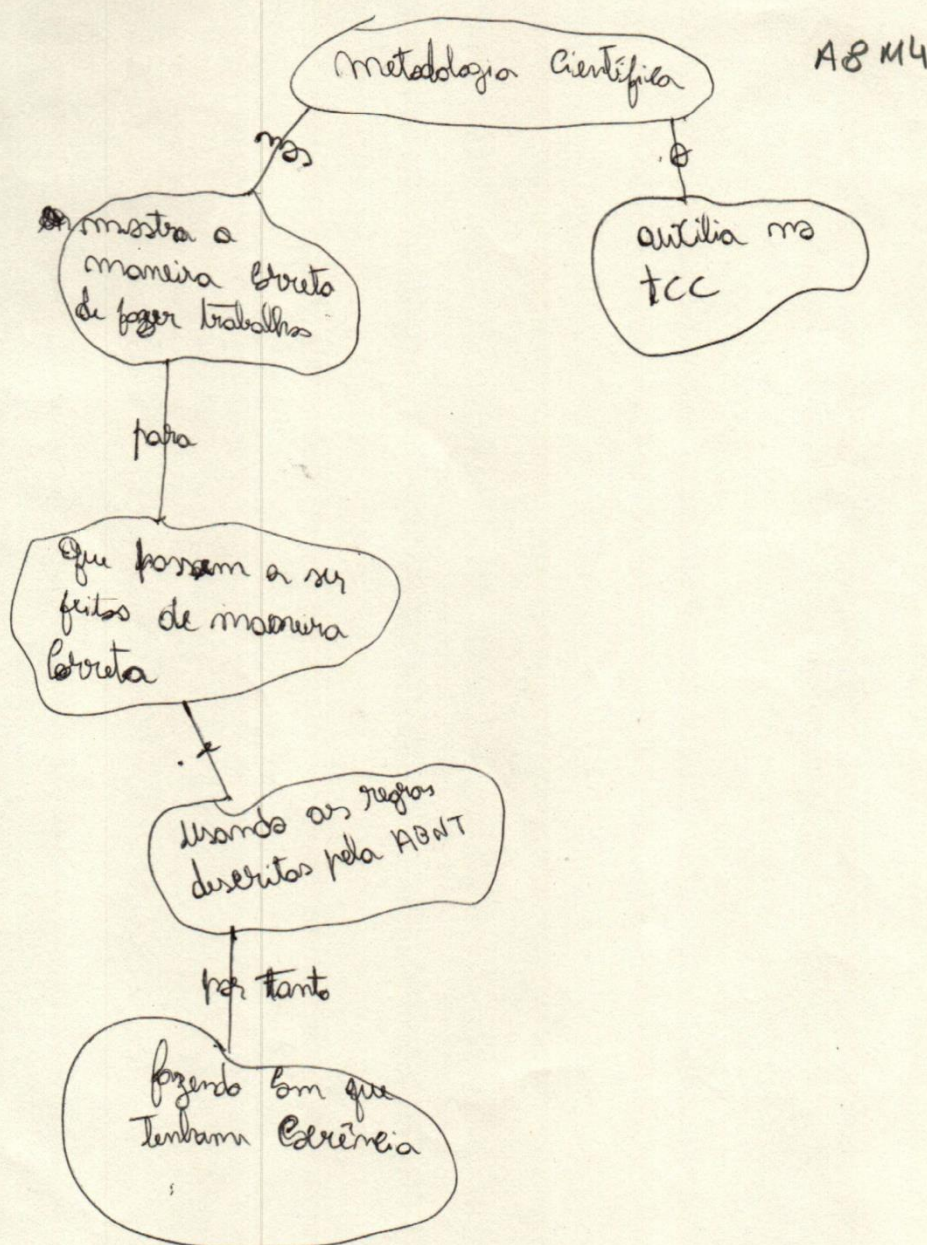 metodologia Científica
A8 M4
nos
.e
mostra a
maneira correta
de fazer trabalhos
auxilia no
TCC
para
Que possam a ser
feitos de maneira
Correta
.e
usando as regras
descritas pela ABNT
por tanto
fazendo com que
Tenham Coerência